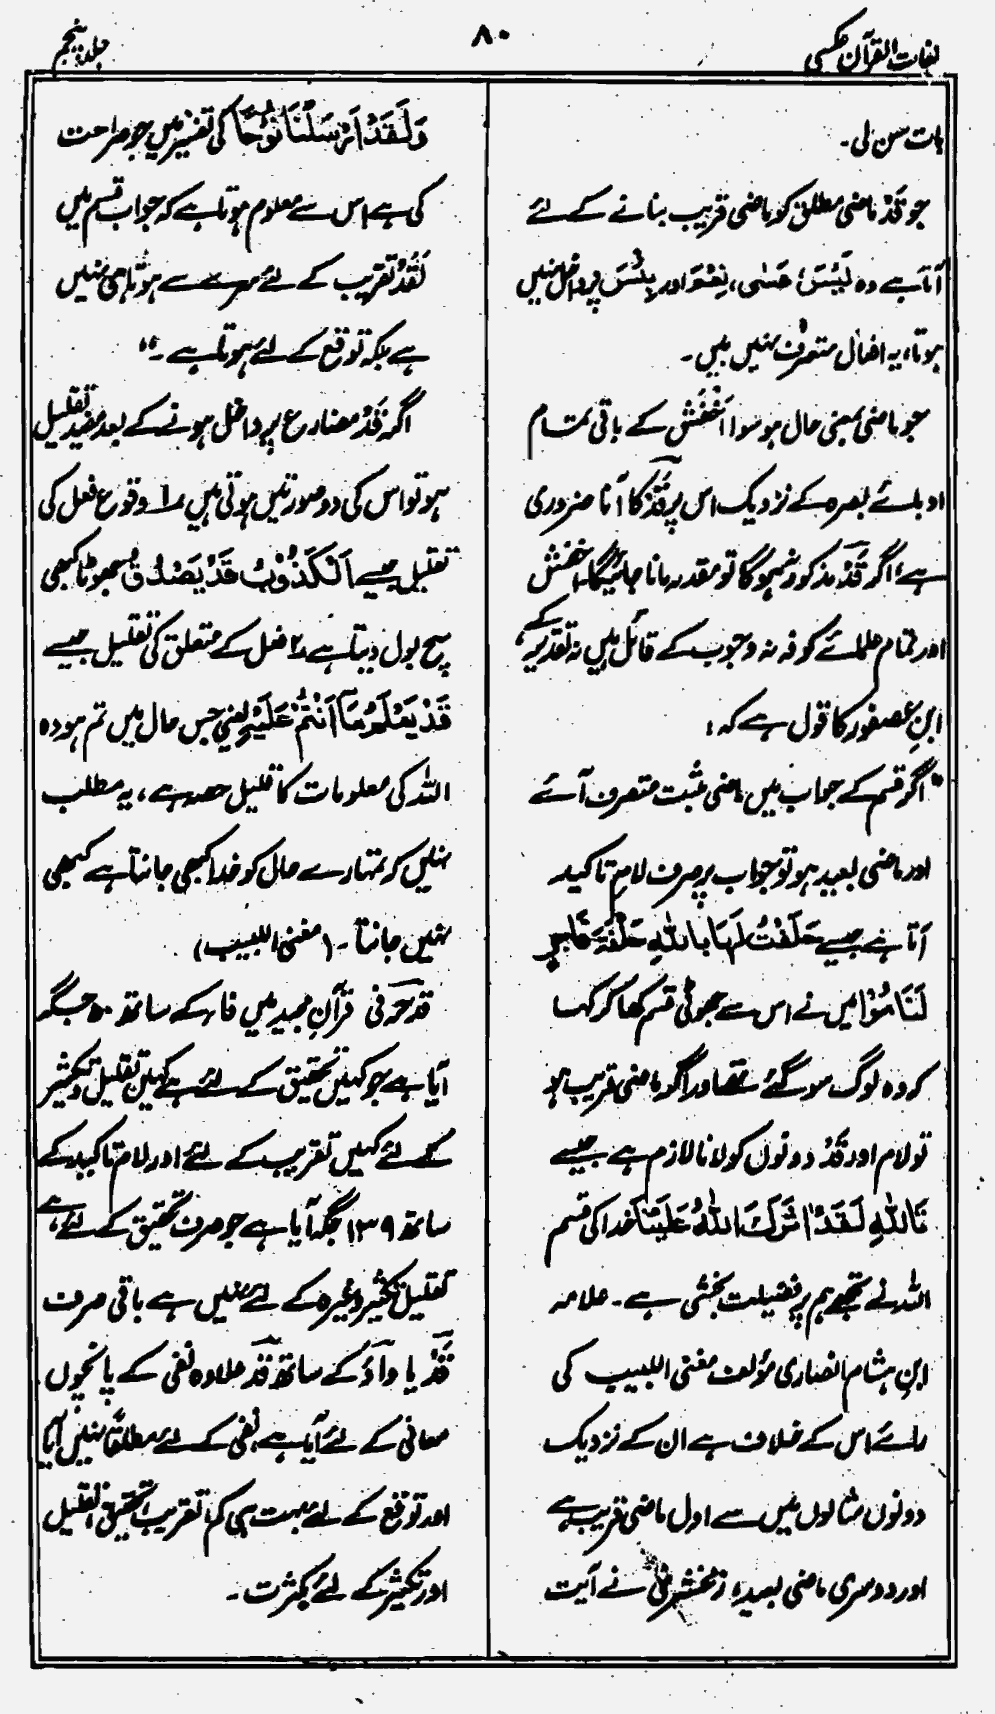 لغات القرآن عکسی
۸۰
جلد پنجم
بات سن لی۔
جو قَدْ ماضی مطلق کو ماضی قریب بنانے کے لئے
آتا ہے وہ لَیْسَ، عَسٰی، نِعْمَ اور بِئْسَ پر داخل نہیں
ہوتا، یہ افعال متصرف نہیں ہیں۔
جو ماضی بمعنی حال ہو سوا اَخْفَش کے باقی تمام
ادبائے بصرہ کے نزدیک اس پر قَدْ کا آنا ضروری
ہے، اگر قَدْ مذکور نہ ہوگا تو مقدر مانا جائیگا۔ اخفش
اور تمام علمائے کوفہ نہ وجوب کے قائل ہیں نہ تقدیر کے،
ابنِ عصفور کا قول ہے کہ:
"اگر قسم کے جواب میں ماضی مثبت متصرف آئے
اور ماضی بعید ہو تو جواب پر صرف لامِ تاکید
آتا ہے جیسے حَلَفْتُ لَهَا بِاللّٰهِ حَلْفَةَ فَاجِرٍ
لَنَامُوْا میں نے اس سے جھوٹی قسم کھا کر کہا
کہ وہ لوگ سو گئے تھے اور اگر ماضی قریب ہو
تو لام اور قَدْ دونوں کو لانا لازم ہے جیسے
تَاللّٰهِ لَقَدْ اٰثَرَكَ اللّٰهُ عَلَيْنَا خدا کی قسم
اللہ نے تجھے ہم پر فضیلت بخشی ہے۔ علامہ
ابنِ ہشام انصاری مؤلف مغنی اللبیب کی
رائے اس کے خلاف ہے ان کے نزدیک
دونوں مثالوں میں سے اول ماضی قریب ہے
اور دوسری ماضی بعید، زمخشری نے آیت
وَلَقَدْ اَرْسَلْنَا نُوْحًا کی تفسیر میں جو صراحت
کی ہے اس سے معلوم ہوتا ہے کہ جواب قسم میں
لَقَدْ تقریب کے لئے سرے سے ہوتا ہی نہیں
ہے بلکہ توقع کے لئے ہوتا ہے۔"
اگر قَدْ مضارع پر داخل ہونے کے بعد مفید تقلیل
ہو تو اس کی دو صورتیں ہوتی ہیں ۱ وقوع فعل کی
تقلیل جیسے اَلْكَذُوْبُ قَدْ يَصْدُقُ جھوٹا کبھی
سچ بول دیتا ہے ۲ فعل کے متعلق کی تقلیل جیسے
قَدْ يَعْلَمُ مَا اَنْتُمْ عَلَيْهِ یعنی جس حال میں تم ہو وہ
اللہ کی معلومات کا قلیل حصہ ہے، یہ مطلب
نہیں کہ تمہارے حال کو خدا کبھی جانتا ہے کبھی
نہیں جانتا۔ (مغنی اللبیب)
قد حرفی قرآن مجید میں فاء کے ساتھ ۵۰ جگہ
آیا ہے جو کہیں تحقیق کے لئے ہے کہیں تقلیل و تکثیر
کے لئے کہیں تقریب کے لئے اور لام تاکید کے
ساتھ ۱۳۹ جگہ آیا ہے جو صرف تحقیق کے لئے ہے،
تقلیل تکثیر وغیرہ کے لئے نہیں ہے باقی صرف
قَدْ یا واؤ کے ساتھ قَدْ علاوہ نفی کے پانچوں
معانی کے لئے آیا ہے، نفی کے لئے مطلقاً نہیں آیا
اور توقع کے لئے بہت ہی کم، تقریب تحقیق، تقلیل
اور تکثیر کے لئے بکثرت۔